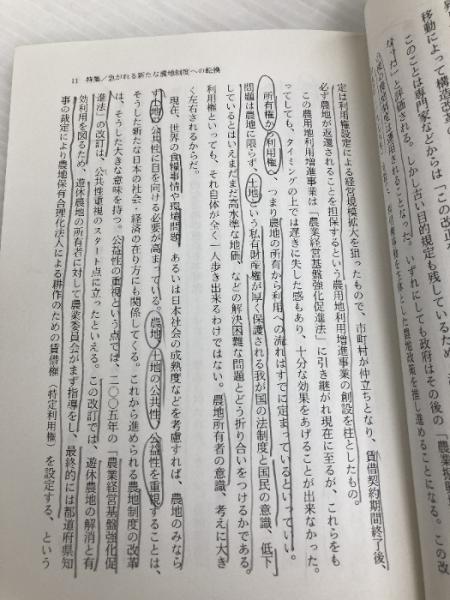 11　特集／急がれる新たな農地制度への転換
移動によって構造改
このことは専門家などからは「この改正
なすだ」と評価される。しかし古い目的規定も残しているため
されることなった。いずれにしても政府はその後の「農業振
農地政策を推し進めることになる。この改
定は利用権設定による経営規模拡大を狙ったもので、市町村が仲立ちとなり、賃借契約期間終了後、
必ず農地が返還されることを担保するという農用地利用増進事業の創設を柱としたもの。
この農用地利用増進事業は「農業経営基盤強化促進法」に引き継がれ現在に至るが、これらをも
ってしても、タイミングの上では遅きに失した感もあり、十分な効果をあげることが出来なかった。
所有権から利用権、つまり農地の所有から利用への流れはすでに定まっているといっていい。
問題は農地に限らず、土地という私有財産権が厚く保護される我が国の法制度と国民の意識、低下
しているとはいえまだまだ高水準な地価、などの解決困難な問題とどう折り合いをつけるかである。
利用権といっても、それ自体が全く一人歩き出来るわけではない。農地所有者の意識、考えに大き
く左右されるからだ。
現在、世界の食糧事情や環境問題、あるいは日本社会の成熟度などを考慮すれば、農地のみなら
ず土地の公共性に目を向ける必要が高まっている。農地、土地の公共性、公益性を重視することは、
そうした新たな日本の社会・経済の在り方にも関係してくる。これから進められる農地制度の改革
は、そうした大きな意味を持つ。公益性の重視という点では、二〇〇五年の「農業経営基盤強化促
進法」の改訂は、公共性重視のスタート点に立ったといえる。この改訂では、遊休農地の解消と有
効利用を図るため、遊休農地の所有者に対して農業委員会がまず指導をし、最終的には都道府県知
事の裁定により農地保有合理化法人による耕作のための賃借権（特定利用権）を設定する、という